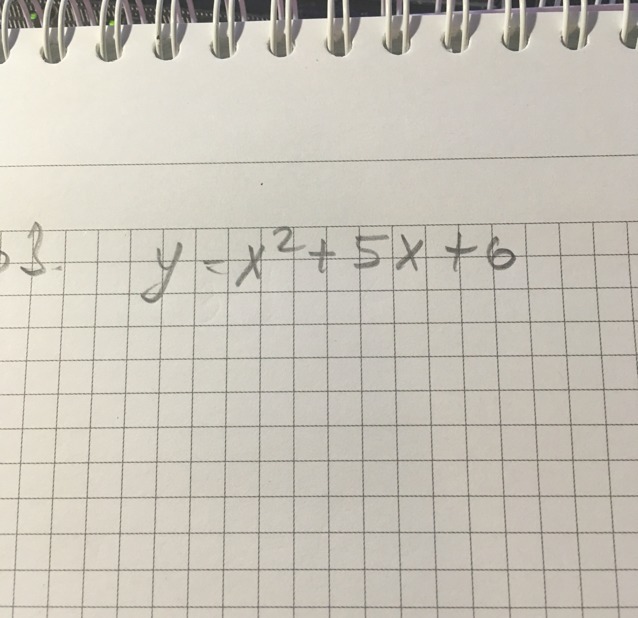 3. y = x² + 5x + 6